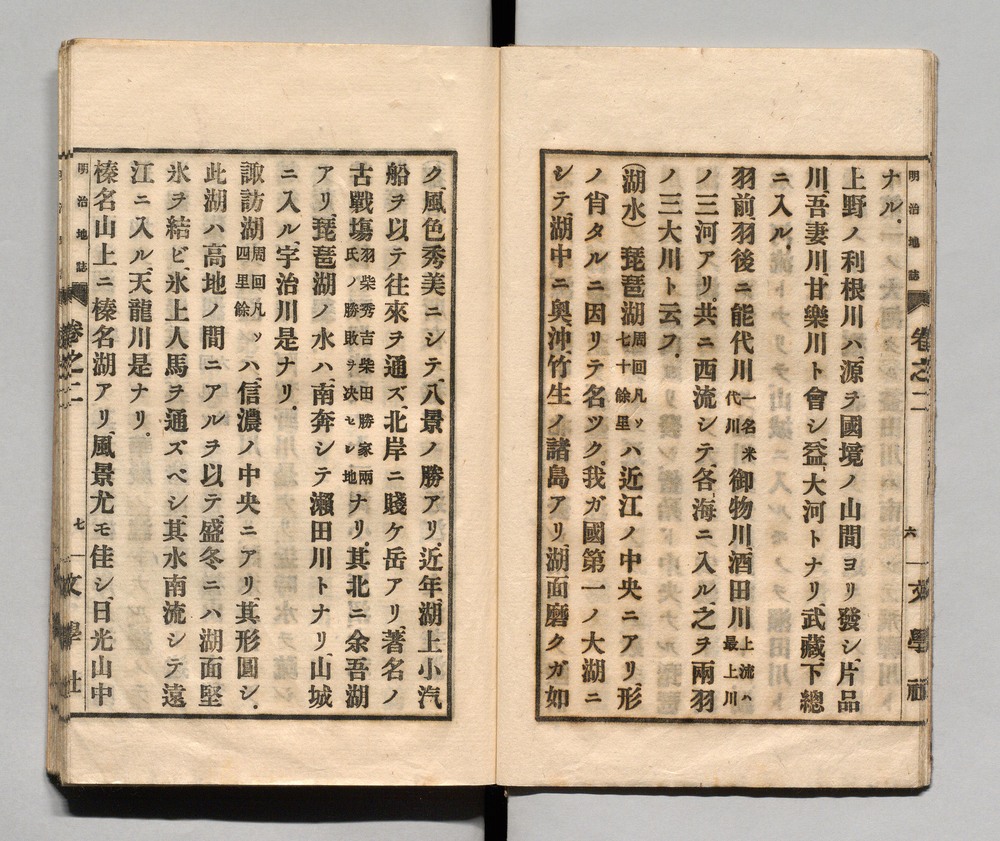 明治地誌 卷之二 六 文學社
ナル、
上野ノ利根川ハ、源ヲ國境ノ山間ヨリ發シ、片品
川、吾妻川、甘樂川ト會シ、益、大河トナリ、武藏下總
ニ入ル、
羽前、羽後ニ能代川一名米代川御物川、酒田川上流ハ最上川
ノ三河アリ、共ニ西流シテ、各、海ニ入ル、之ヲ兩羽
ノ三大川ト云フ、
(湖水)琵琶湖周回凡ソ七十餘里ハ近江ノ中央ニアリ、形
ノ肖タルニ因リテ名ツク、我ガ國第一ノ大湖ニ
シテ、湖中ニ奥、沖、竹生ノ諸島アリ、湖面磨クガ如
ク、風色秀美ニシテ、八景ノ勝アリ、近年、湖上小汽
船ヲ以テ往來ヲ通ズ、北岸ニ賤ケ岳アリ、著名ノ
古戰塲羽柴秀吉柴田勝家兩氏ノ勝敗ヲ决セシ地ナリ、其北ニ余吾湖
アリ、琵琶湖ノ水ハ、南奔シテ瀨田川トナリ、山城
ニ入ル、宇治川是ナリ、
諏訪湖周回凡ソ四里餘ハ、信濃ノ中央ニアリ、其形圓シ、
此湖ハ高地ノ間ニアルヲ以テ、盛冬ニハ湖面堅
氷ヲ結ビ、氷上人馬ヲ通ズベシ、其水南流シテ遠
江ニ入ル、天龍川是ナリ、
榛名山上ニ榛名湖アリ、風景尤モ佳シ、日光山中
明治地誌 卷之二 七 文學社